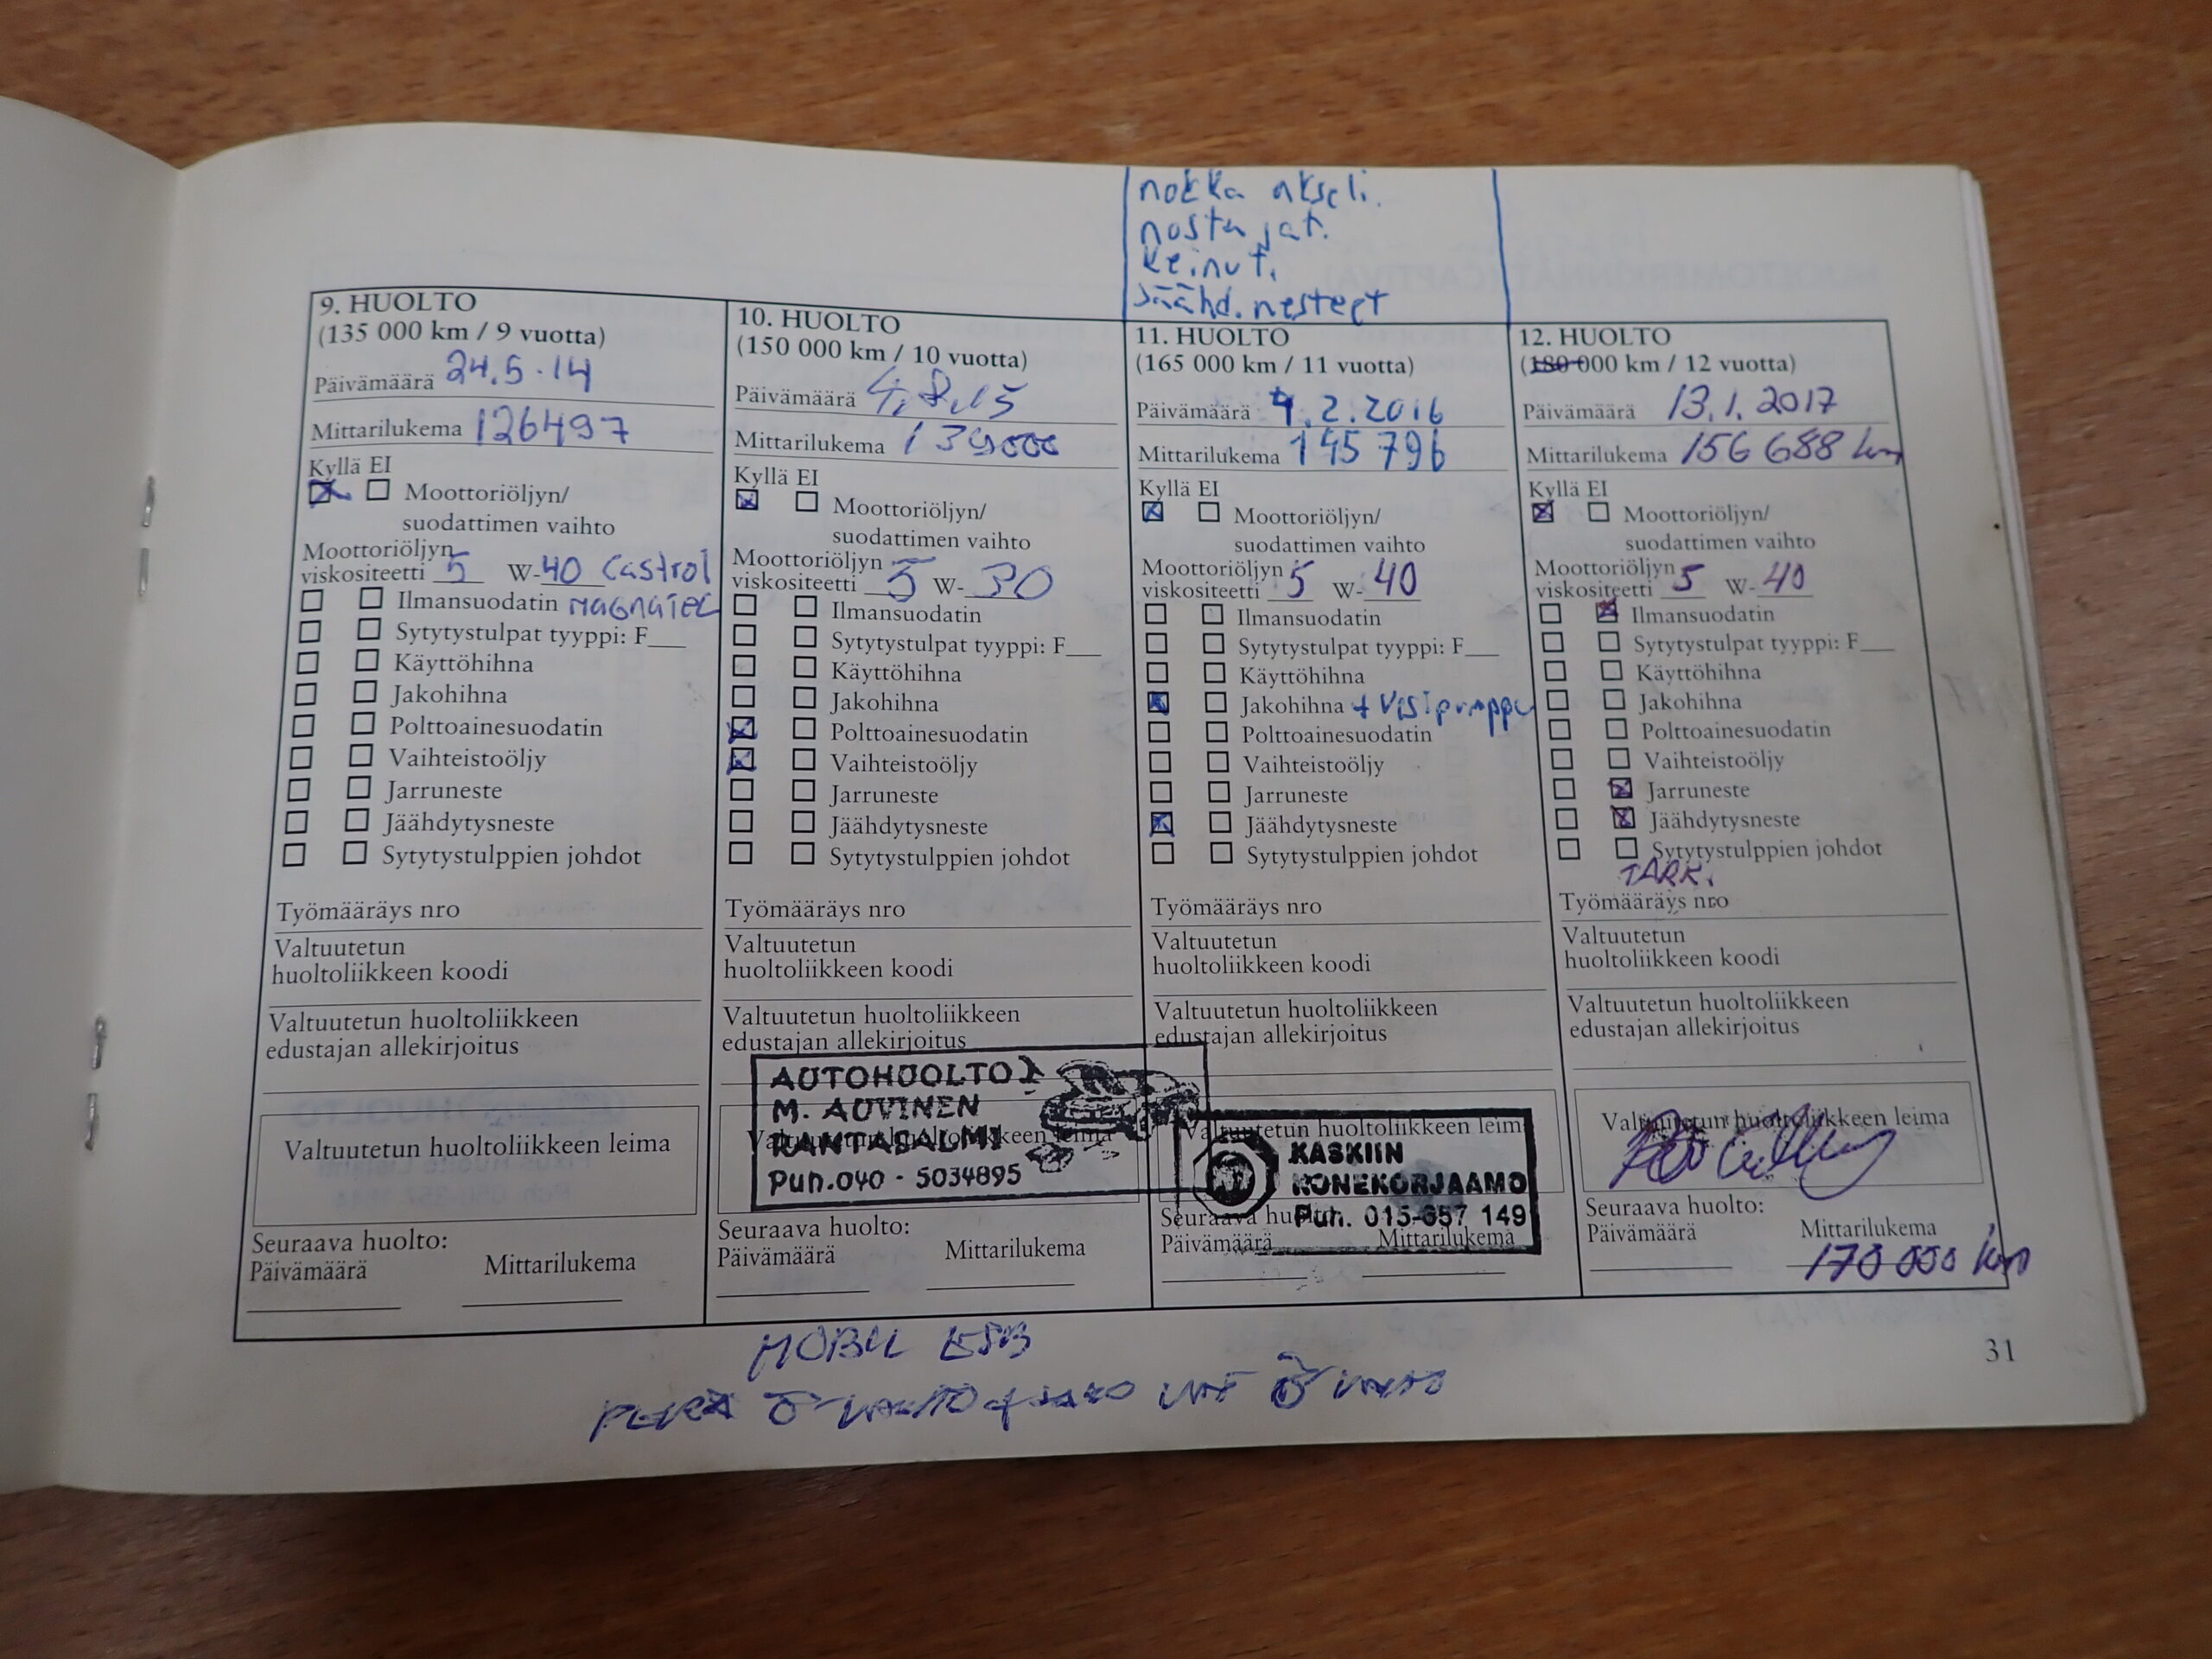 nokka akseli.
nostajat.
keinut.
Jäähd. nesteet
9. HUOLTO
(135 000 km / 9 vuotta)
Päivämäärä 24.5.14
Mittarilukema 126497
Kyllä EI
Moottoriöljyn/
suodattimen vaihto
Moottoriöljyn
viskositeetti 5 W-40 Castrol
Ilmansuodatin MAGNATEC
Sytytystulpat tyyppi: F
Käyttöhihna
Jakohihna
Polttoainesuodatin
Vaihteistoöljy
Jarruneste
Jäähdytysneste
Sytytystulppien johdot
Työmääräys nro
Valtuutetun
huoltoliikkeen koodi
Valtuutetun huoltoliikkeen
edustajan allekirjoitus
Valtuutetun huoltoliikkeen leima
Seuraava huolto:
Päivämäärä Mittarilukema
10. HUOLTO
(150 000 km / 10 vuotta)
Päivämäärä 4.8.15
Mittarilukema 139000
Kyllä EI
Moottoriöljyn/
suodattimen vaihto
Moottoriöljyn
viskositeetti 5 W-30
Ilmansuodatin
Sytytystulpat tyyppi: F
Käyttöhihna
Jakohihna
Polttoainesuodatin
Vaihteistoöljy
Jarruneste
Jäähdytysneste
Sytytystulppien johdot
Työmääräys nro
Valtuutetun
huoltoliikkeen koodi
Valtuutetun huoltoliikkeen
edustajan allekirjoitus
AUTOHUOLTO
M. AUVINEN
RANTASALMI
Puh. 040 - 5034895
Valtuutetun huoltoliikkeen leima
Seuraava huolto:
Päivämäärä Mittarilukema
11. HUOLTO
(165 000 km / 11 vuotta)
Päivämäärä 4.2.2016
Mittarilukema 145 796
Kyllä EI
Moottoriöljyn/
suodattimen vaihto
Moottoriöljyn
viskositeetti 5 W-40
Ilmansuodatin
Sytytystulpat tyyppi: F
Käyttöhihna
Jakohihna + Vesipumppu
Polttoainesuodatin
Vaihteistoöljy
Jarruneste
Jäähdytysneste
Sytytystulppien johdot
Työmääräys nro
Valtuutetun
huoltoliikkeen koodi
Valtuutetun huoltoliikkeen
edustajan allekirjoitus
Valtuutetun huoltoliikkeen leima
KASKIIN
KONEKORJAAMO
Puh. 015-657 149
Seuraava huolto:
Päivämäärä Mittarilukema
12. HUOLTO
(180 000 km / 12 vuotta)
Päivämäärä 13.1.2017
Mittarilukema 156 688 km
Kyllä EI
Moottoriöljyn/
suodattimen vaihto
Moottoriöljyn
viskositeetti 5 W-40
Ilmansuodatin
Sytytystulpat tyyppi: F
Käyttöhihna
Jakohihna
Polttoainesuodatin
Vaihteistoöljy
Jarruneste
Jäähdytysneste
Sytytystulppien johdot
TARK.
Työmääräys nro
Valtuutetun
huoltoliikkeen koodi
Valtuutetun huoltoliikkeen
edustajan allekirjoitus
Valtuutetun huoltoliikkeen leima
Seuraava huolto:
Päivämäärä Mittarilukema
170 000 km
MOBIL ESB
PERÄ Ö
31